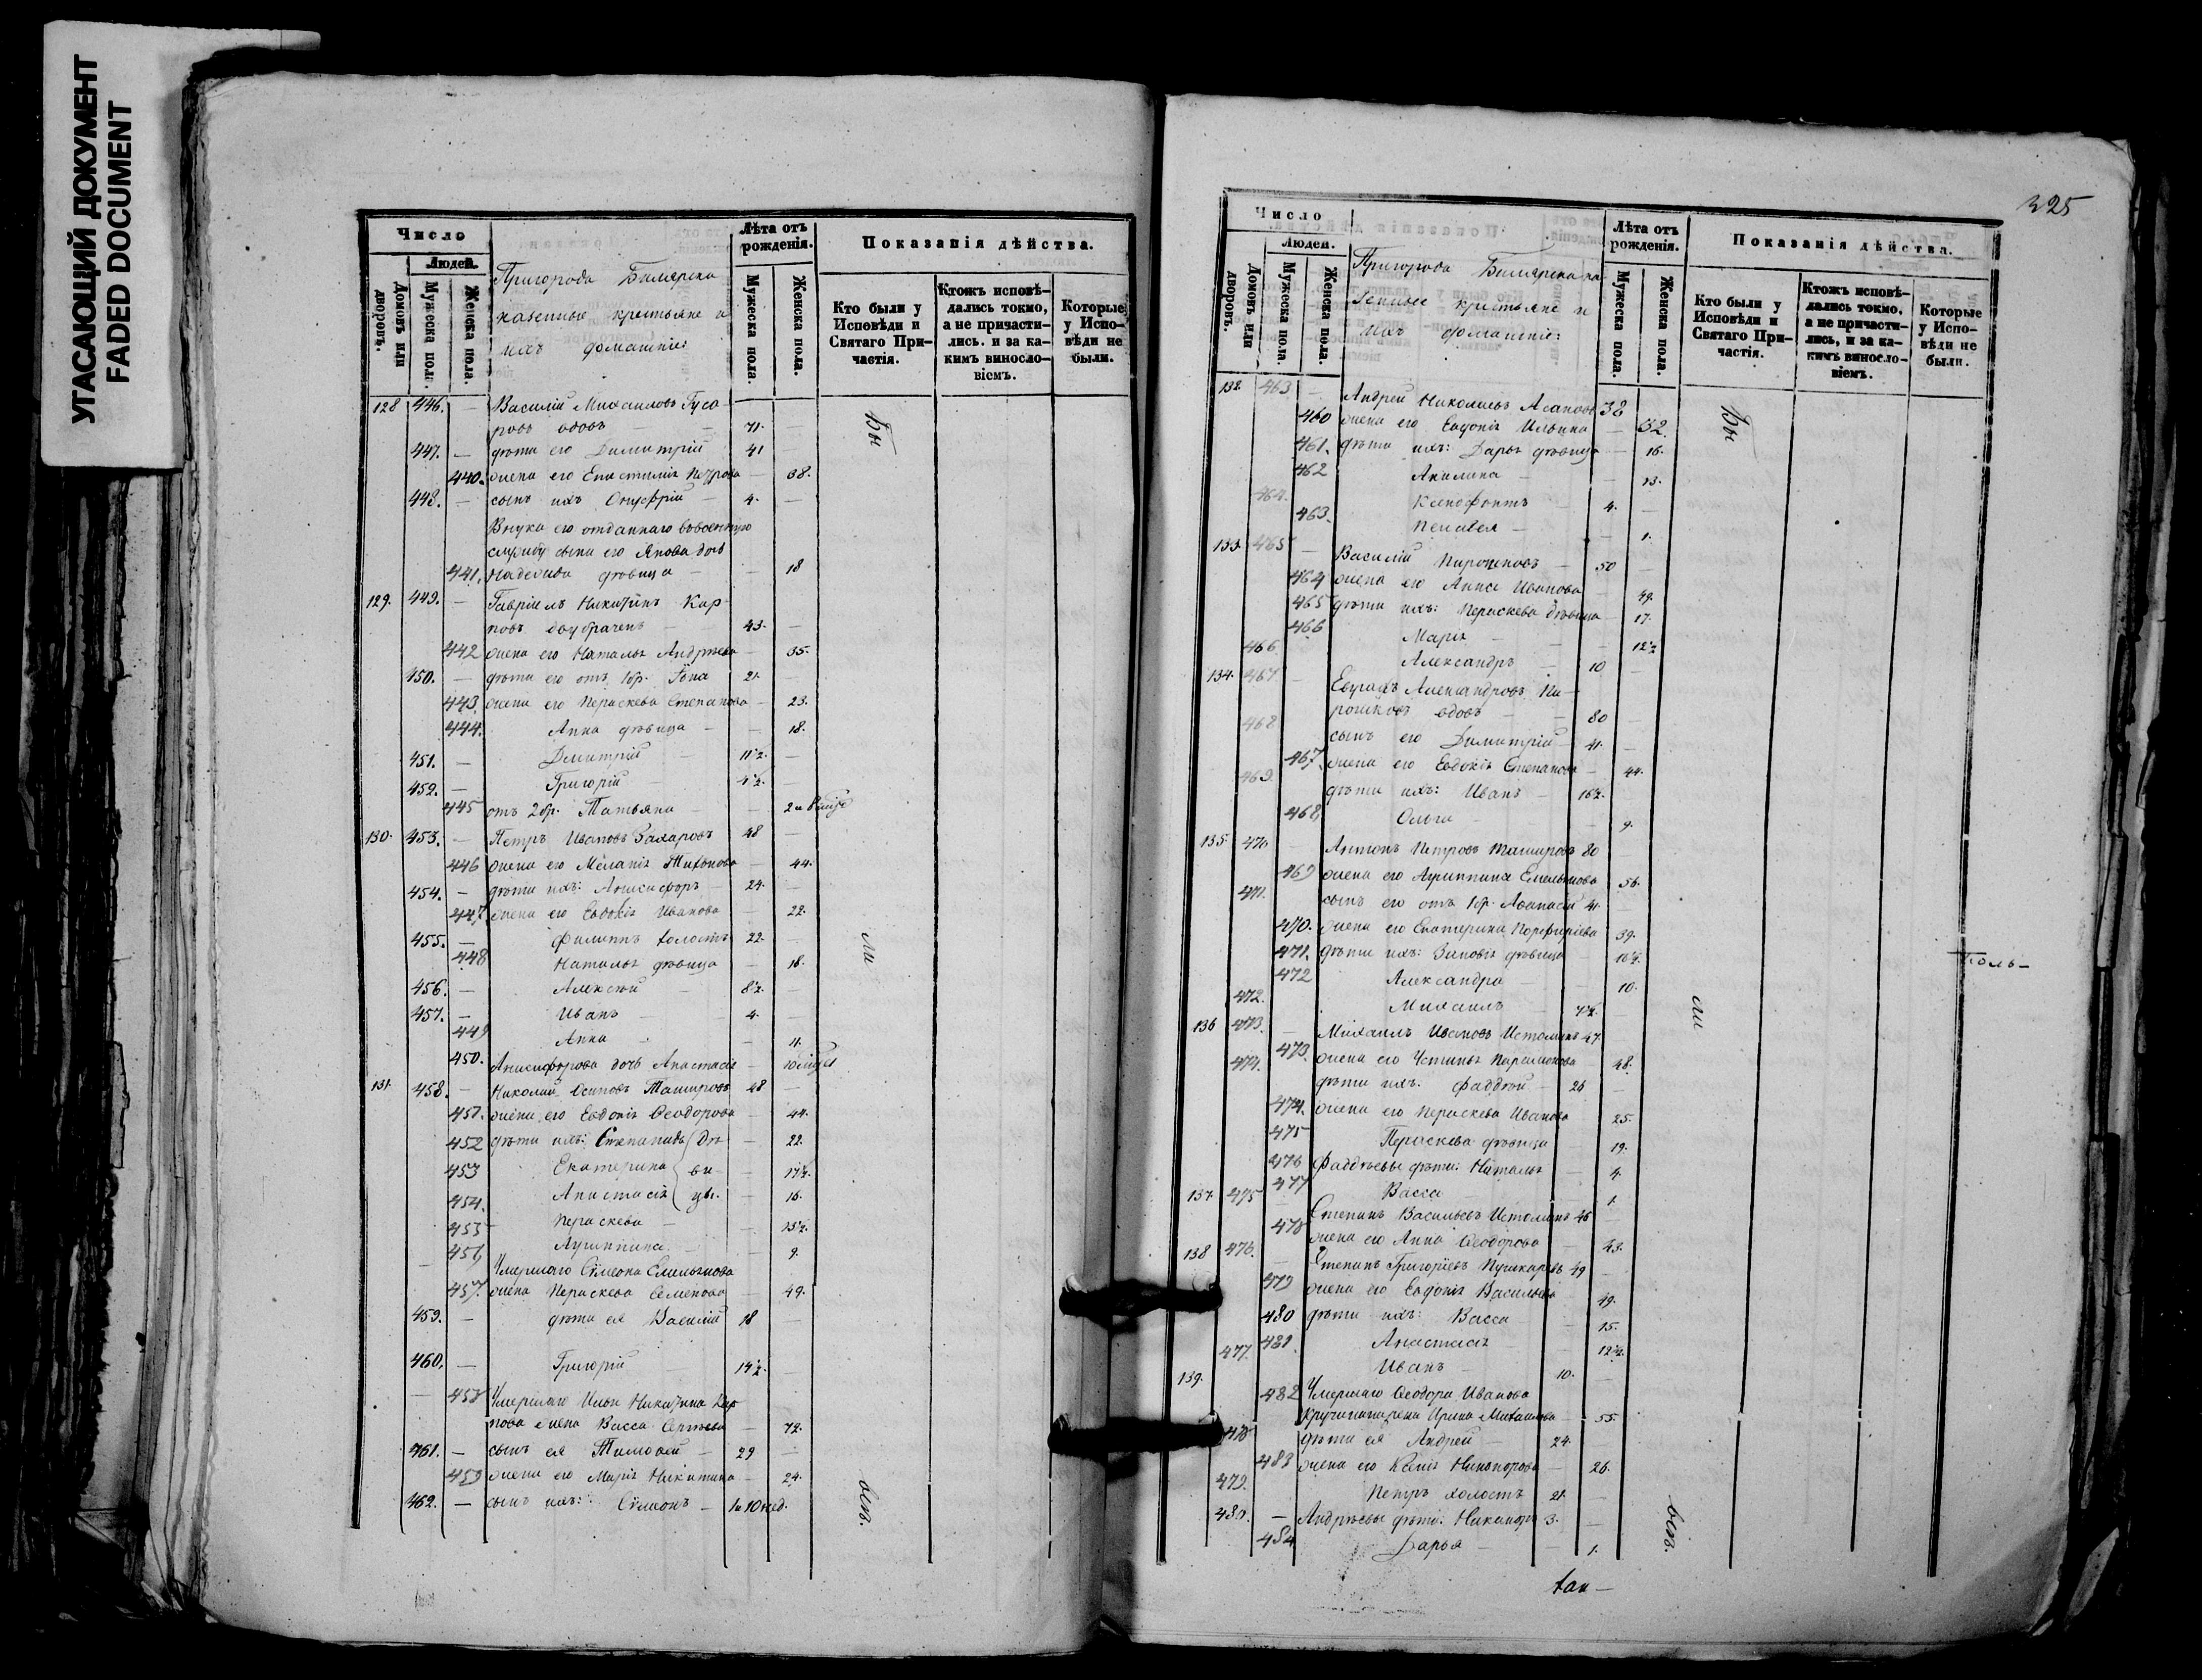 УГАСАЮЩИЙ ДОКУМЕНТ
FADED DOCUMENT
Число
Людей.
Домовъ или дворовъ.
Мужеска пола.
Женска пола.
Пригорода Билярска
казенные крестьяне и
ихъ домашніе:
Лѣта отъ рожденія.
Мужеска пола.
Женска пола.
Показанія дѣйства.
Кто были у Исповѣди и Святаго Причастія.
Ктожъ исповѣдались токмо, а не причастились. и за какимъ винословіемъ.
Которые у Исповѣди не были.
128 446. — Василій Михаиловъ Гусо-
ровъ вдовъ — 71. —
447. — дѣти его Димитрій 41 —
440. жена его Епистимія Петрова — 38.
448. — сынъ ихъ Онуфрій — 4. —
Внука его отданнаго въ военную
службу сына его Якова дочь
441. Надежда дѣвица — 18
129. 449. — Гавріилъ Никитинъ Кар-
повъ двубраченъ — 43. —
442 жена его Наталья Андреева — 35.
150. — дѣти его отъ 1 бр. Іона 21. —
443. жена его Пераскева Степанова — 23.
444. Анна дѣвица — 18.
451. — Дмитрій — 11½. —
452. — Григорій 4½. —
445 отъ 2 бр. Татьяна — 2 и 8 мѣс
130. 453. — Петръ Ивановъ Захаровъ 48 —
446 жена его Меланія Тихонова — 44.
454. — дѣти ихъ: Анисифоръ — 24. —
447 жена его Евдокія Иванова — 22.
455. — Филиппъ холостъ 22. —
448 Наталья дѣвица — 18.
456. — Алексѣй — 8½. —
457. — Иванъ — 4. —
449 Анна — 11.
450. Анисифорова дочь Анастасія —
131. 458. — Николай Осиповъ Ташировъ 48 —
451. жена его Евдокія Ѳеодорова — 44.
452 дѣти ихъ: Степанида Дѣ- — 22.
453 Екатерина ви- — 17½.
454. Анастасія цы. — 16.
455 Пераскева — 13½.
456 Агриппина — 9.
Умершаго Сѵмеона Емельянова
457. жена Пераскева Семенова — 49.
459. — дѣти ея Василій 18 —
460. — Григорій 14½. —
458 Умершаго Ильи Никитина Кар-
пова жена Васса Сергѣева — 72.
461. — сынъ ея Тимоѳей — 29 —
459 жена его Марія Никитина — 24.
462. — сынъ ихъ: Сѵмеонъ — 1 и 10 нед.
Бы
ли
всѣ.
325
Число
Людей.
Домовъ или дворовъ.
Мужеска пола.
Женска пола.
Пригорода Билярска ка-
зенные крестьяне и
ихъ домашніе:
Лѣта отъ рожденія.
Мужеска пола.
Женска пола.
Показанія дѣйства.
Кто были у Исповѣди и Святаго Причастія.
Ктожъ исповѣдались токмо, а не причастились, и за какимъ винословіемъ.
Которые у Исповѣди не были.
132. 463 — Андрей Николаевъ Асановъ 38
460 жена его Евдокія Ильина — 32.
461. дѣти ихъ: Дарья дѣвица — 16.
462 Акилина — 13.
464. Ксенофонтъ — 4. —
463. Пелагея — 1.
133. 465 — Василій Пирожковъ — 50 —
464 жена его Анна Иванова — 49.
465 дѣти ихъ: Пераскева дѣвица — 17.
466 Марія — 12½
466. Александръ — 10 —
134. 467 — Евграфъ Александровъ Пи-
рожковъ вдовъ — 80 —
468 сынъ его Димитрій — 41. —
467. жена его Евдокія Степанова — 44.
469. дѣти ихъ: Иванъ — 16½. —
468. Ольга — 9.
135. 470 — Антонъ Петровъ Ташировъ 80 —
469 жена его Агриппина Емельянова — 56.
471. сынъ его отъ 1 бр. Аѳанасій 41. —
470. жена его Екатерина Порфиріева 39.
471. дѣти ихъ: Зиновія дѣвица — 16½.
472 Александра — 10.
472. Михаилъ — 7½. —
136 473. — Михаилъ Ивановъ Истоминъ 47.
473. жена его Устинья Парамонова — 48.
474. дѣти ихъ: Фаддѣй — 26 —
474. жена его Пераскева Иванова 25.
475 Пераскева дѣвица — 19.
476 Фаддѣевы дѣти: Наталья — 4.
477 Васса — 1.
137. 475 — Степанъ Васильевъ Истоминъ 46 —
478 жена его Анна Ѳеодорова — 43.
138 476. — Степанъ Григоріевъ Пушкаревъ 49 —
479 жена его Евдокія Васильева — 49.
480 дѣти ихъ: Васса — 15.
481 Анастасія — 12½.
477. Иванъ — 10. —
139. 482 Умершаго Ѳеодора Иванова
жена Ирина Михаилова — 55.
478 дѣти ея Андрей — 24. —
483 жена его Ксенія Никифорова — 26.
479. Петръ холостъ 21. —
480. — Андрѣевы дѣти: Никаноръ 3. —
484 Дарья — 1.
Бы
ли
всѣ.
толь-